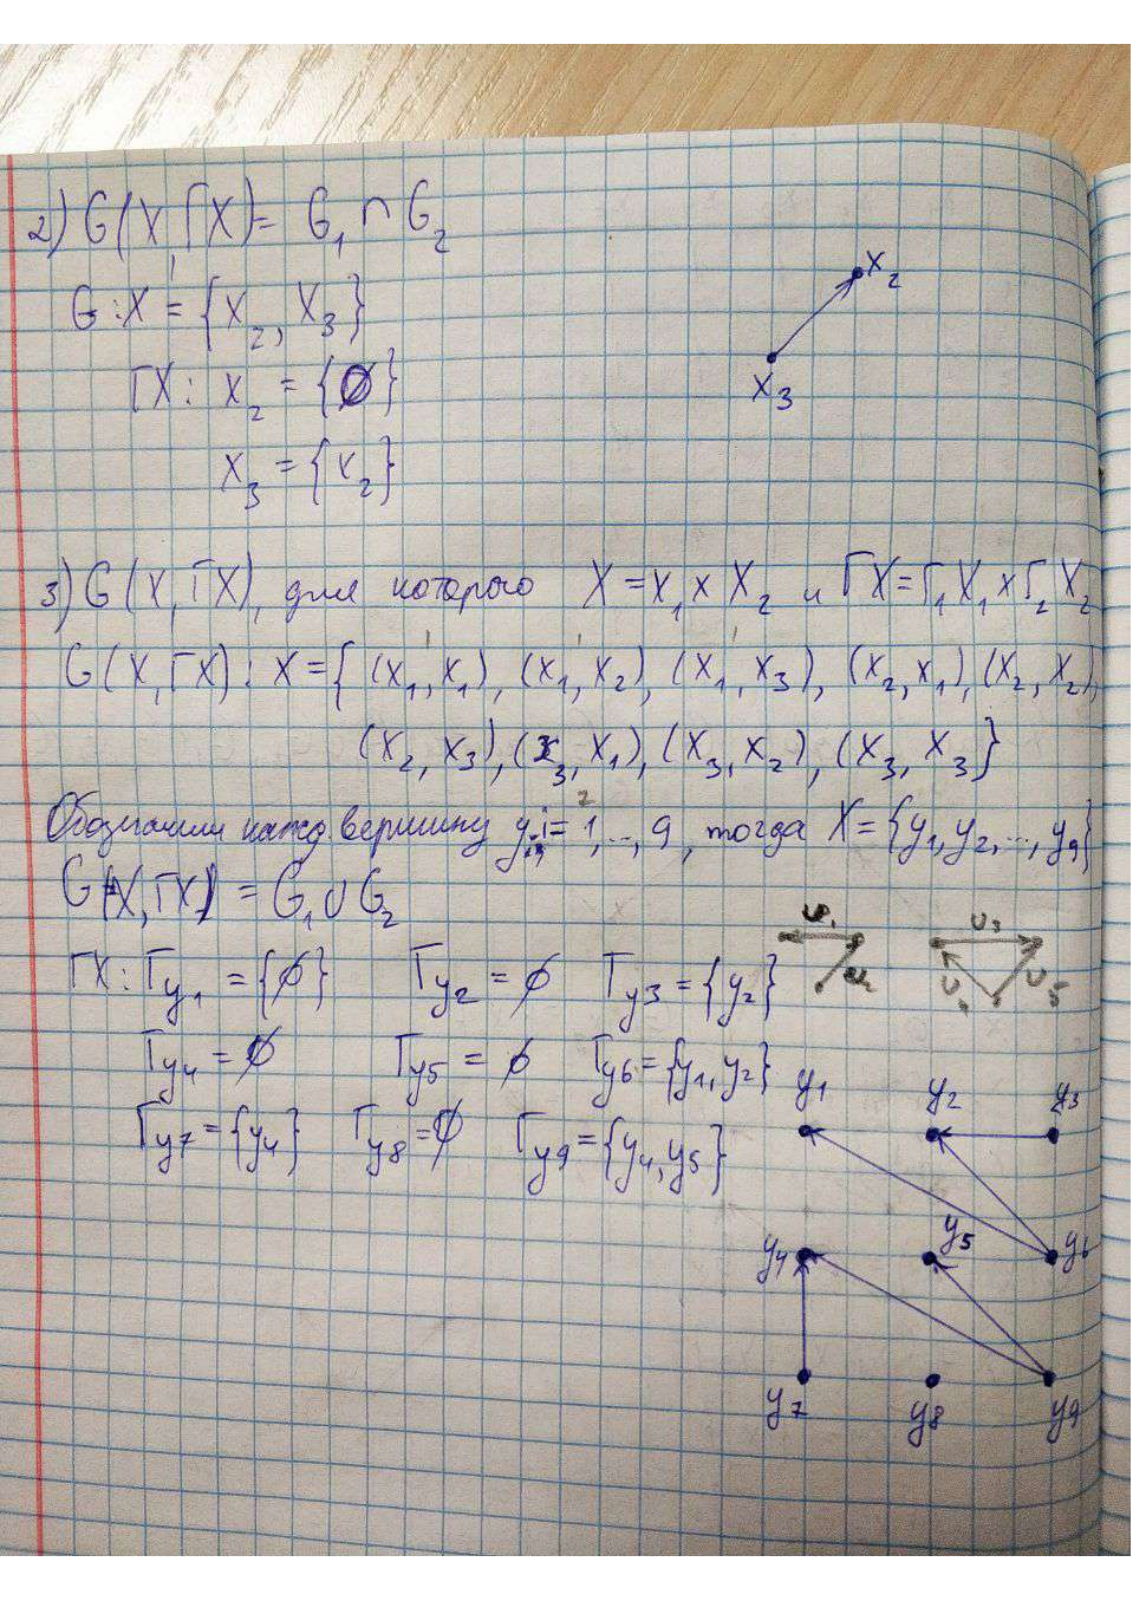 2) G(X,ГX) = G₁ ∩ G₂
G: X = {x₂, x₃}
ГX: x₂ = {∅}
x₃ = {x₂}
x₂
x₃
3) G(X,ГX), для которого X = X₁ x X₂ и ГX = Г₁X₁ x Г₂X₂
G(X,ГX): X = { (x₁,x₁), (x₁,x₂), (x₁,x₃), (x₂,x₁), (x₂,x₂),
(x₂,x₃), (x₃,x₁), (x₃,x₂), (x₃,x₃)}
Обозначим кажд. вершину yᵢ, i = 1,..,9, тогда X = {y₁,y₂,..,y₉}
G(X,ГX) = G₁ ∪ G₂
ГX: Гy₁ = {∅} Гy₂ = ∅ Гy₃ = {y₂}
Гy₄ = ∅ Гy₅ = ∅ Гy₆ = {y₁,y₂}
Гy₇ = {y₄} Гy₈ = ∅ Гy₉ = {y₄,y₅}
y₁ y₂ y₃
y₄ y₅ y₆
y₇ y₈ y₉